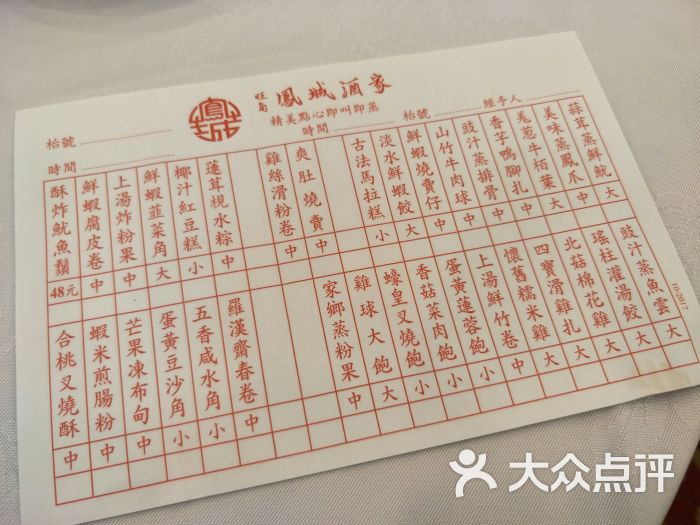 旺角 鳳城酒家
精美點心即叫即蒸
枱號
時間
時間
枱號
經手人
蒜茸蒸鮮魷 大
美味蒸鳳爪 中
羗葱牛栢葉 大
香芋鴨腳扎 中
豉汁蒸排骨 中
山竹牛肉球 中
鮮蝦燒賣仔 中
淡水鮮蝦餃 大
古法馬拉糕 小
爽肚燒賣 中
雞絲滑粉卷 中
蓮茸梘水粽 中
椰汁紅豆糕 小
鮮蝦韮菜角 大
上湯炸粉果 中
鮮蝦腐皮卷 中
酥炸魷魚鬚 48元
豉汁蒸魚雲 大
瑤柱灌湯餃 大
北菇棉花雞 大
四寶滑雞扎 大
懷舊糯米雞 大
上湯鮮竹卷 中
蛋黃蓮蓉飽 小
香菇菜肉飽 小
蠔皇叉燒飽 小
雞球大飽 大
家鄉蒸粉果 中
羅漢齋春卷 中
五香咸水角 小
蛋黃豆沙角 小
芒果凍布甸 中
蝦米煎腸粉 中
合桃叉燒酥 中
10-2017
大众点评